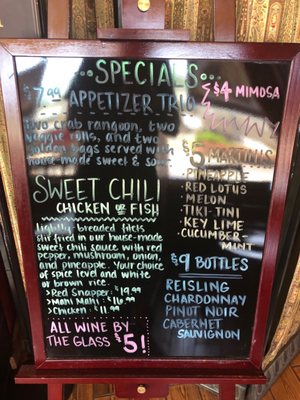 SPECIALS
$7.99 APPETIZER TRIO
two crab rangoon, two
veggie rolls, and two
golden bags served with
house-made sweet & sour
SWEET CHILI
CHICKEN or FISH
lightly breaded filets
stir fried in our house-made
sweet chili sauce with red
pepper, mushroom, onion,
and pineapple. Your choice
of spice level and white
or brown rice.
>Red Snapper: $19.99
>Mahi Mahi: $16.99
>Chicken: $11.99
ALL WINE BY
THE GLASS $5!
$4 MIMOSA
$5 MARTINIS
-PINEAPPLE
-RED LOTUS
-MELON
-TIKI-TINI
-KEY LIME
-CUCUMBER
MINT
$9 BOTTLES
REISLING
CHARDONNAY
PINOT NOIR
CABERNET
SAUVIGNON